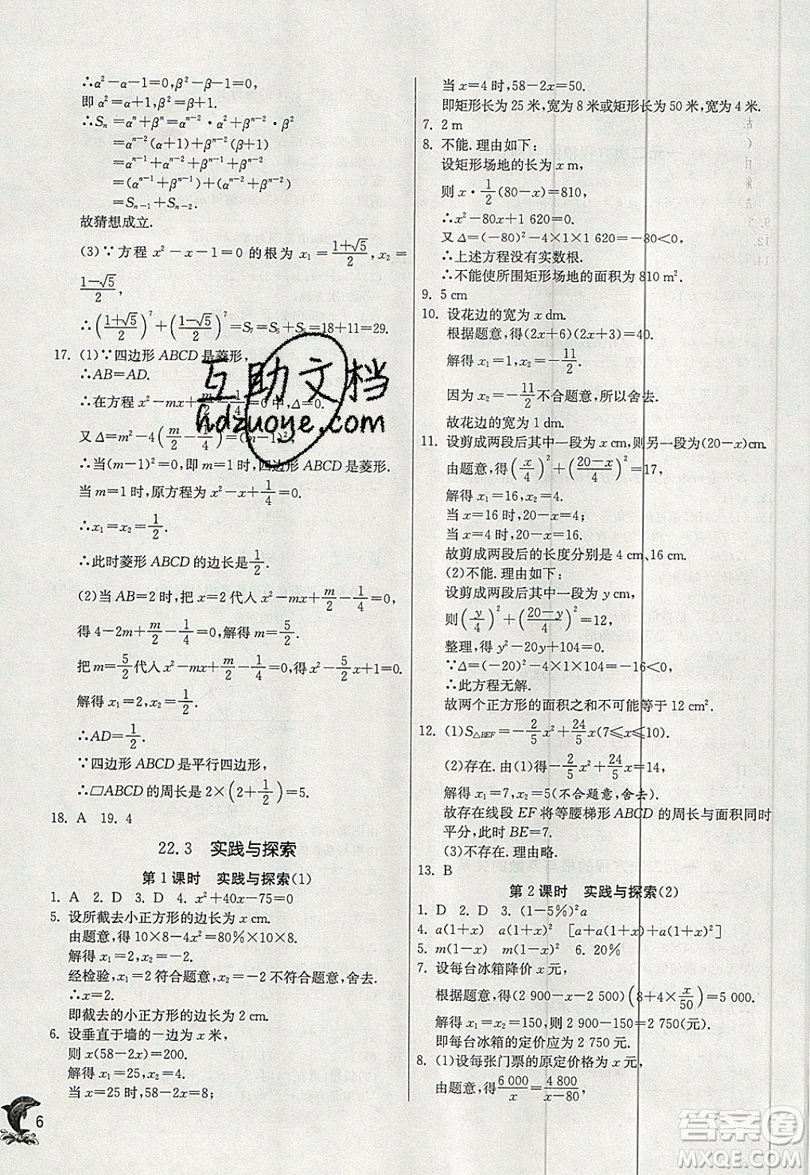 ∴α²－α－1=0,β²－β－1=0.
即 α²=α+1,β²=β+1.
∴Sₙ=αⁿ+βⁿ=αⁿ⁻²·α²+βⁿ⁻²·β²
=αⁿ⁻²(α+1)+βⁿ⁻²(β+1)
=αⁿ⁻¹+αⁿ⁻²+βⁿ⁻¹+βⁿ⁻²
=αⁿ⁻¹+βⁿ⁻¹+αⁿ⁻²+βⁿ⁻²
=Sₙ₋₁+Sₙ₋₂.
故猜想成立.
(3)∵方程 x²－x－1=0 的根为 x₁=(1+√5)/2,x₂=
(1－√5)/2,
∴((1+√5)/2)⁷+((1－√5)/2)⁷=S₇=S₆+S₅=18+11=29.
17. (1)∵四边形 ABCD 是菱形,
∴AB=AD.
∴在方程 x²－mx+m/2－1/4=0,Δ=0.
又 Δ=m²－4(m/2－1/4)=(m－1)²,
∴当(m－1)²=0,即 m=1 时,四边形 ABCD 是菱形.
当 m=1 时,原方程为 x²－x+1/4=0.
∴x₁=x₂=1/2.
∴此时菱形 ABCD 的边长是1/2.
(2)当 AB=2 时,把 x=2 代入 x²－mx+m/2－1/4=0,
得 4－2m+m/2－1/4=0,解得 m=5/2.
把 m=5/2代入 x²－mx+m/2－1/4=0,得 x²－5/2x+1=0.
解得 x₁=2,x₂=1/2.
∴AD=1/2.
∵四边形 ABCD 是平行四边形,
∴▱ABCD 的周长是 2×(2+1/2)=5.
18. A 19. 4
22.3 实践与探索
第 1 课时 实践与探索(1)
1. A 2. D 3. D 4. x²+40x－75=0
5. 设所截去小正方形的边长为 x cm.
由题意,得 10×8－4x²=80%×10×8.
解得 x₁=2,x₂=－2.
经检验,x₁=2 符合题意,x₂=－2 不符合题意,舍去.
∴x=2.
即截去的小正方形的边长为 2 cm.
6. 设垂直于墙的一边为 x 米,
则 x(58－2x)=200.
解得 x₁=25,x₂=4.
当 x=25 时,58－2x=8;
6
当 x=4 时,58－2x=50.
即矩形长为 25 米,宽为 8 米或矩形长为 50 米,宽为 4 米.
7. 2 m
8. 不能. 理由如下:
设矩形场地的长为 x m,
则 x·1/2(80－x)=810,
∴x²－80x+1 620=0.
又 Δ=(－80)²－4×1×1 620=－80<0,
∴上述方程没有实数根.
∴不能使所围矩形场地的面积为 810 m².
9. 5 cm
10. 设花边的宽为 x dm.
根据题意,得(2x+6)(2x+3)=40.
解得 x₁=1,x₂=－11/2.
因为 x₂=－11/2不合题意,所以舍去.
故花边的宽为 1 dm.
11. 设剪成两段后其中一段为 x cm,则另一段为(20－x)cm.
由题意,得(x/4)²+((20－x)/4)²=17,
解得 x₁=16,x₂=4.
当 x=16 时,20－x=4;
当 x=4 时,20－x=16.
故剪成两段后的长度分别是 4 cm,16 cm.
(2)不能. 理由如下:
设剪成两段后其中一段为 y cm,
则(y/4)²+((20－y)/4)²=12,
整理,得 y²－20y+104=0.
∵Δ=(－20)²－4×1×104=－16<0,
∴此方程无解.
故两个正方形的面积之和不可能等于 12 cm².
12. (1)S△BEF=－2/5x²+24/5x(7≤x≤10).
(2)存在. 由(1)得－2/5x²+24/5x=14.
解得 x₁=7,x₂=5(不合题意,舍去).
故存在线段 EF 将等腰梯形 ABCD 的周长与面积同时
平分,此时 BE=7.
(3)不存在. 理由略.
13. B
第 2 课时 实践与探索(2)
1. D 2. D 3. (1－5%)²a
4. a(1+x) a(1+x)² [a+a(1+x)+a(1+x)²]
5. m(1－x) m(1－x)² 6. 20%
7. 设每台冰箱降价 x 元,
根据题意,得(2 900－x－2 500)(8+4×x/50)=5 000,
解得 x₁=x₂=150,则 2 900－150=2 750(元).
即每台冰箱的定价应为 2 750 元.
8. (1)设每张门票的原定价格为 x 元,
由题意,得6 000/x=4 800/(x－80),
互助文档
hdzuoye.com
答案圈
MXQE.COM